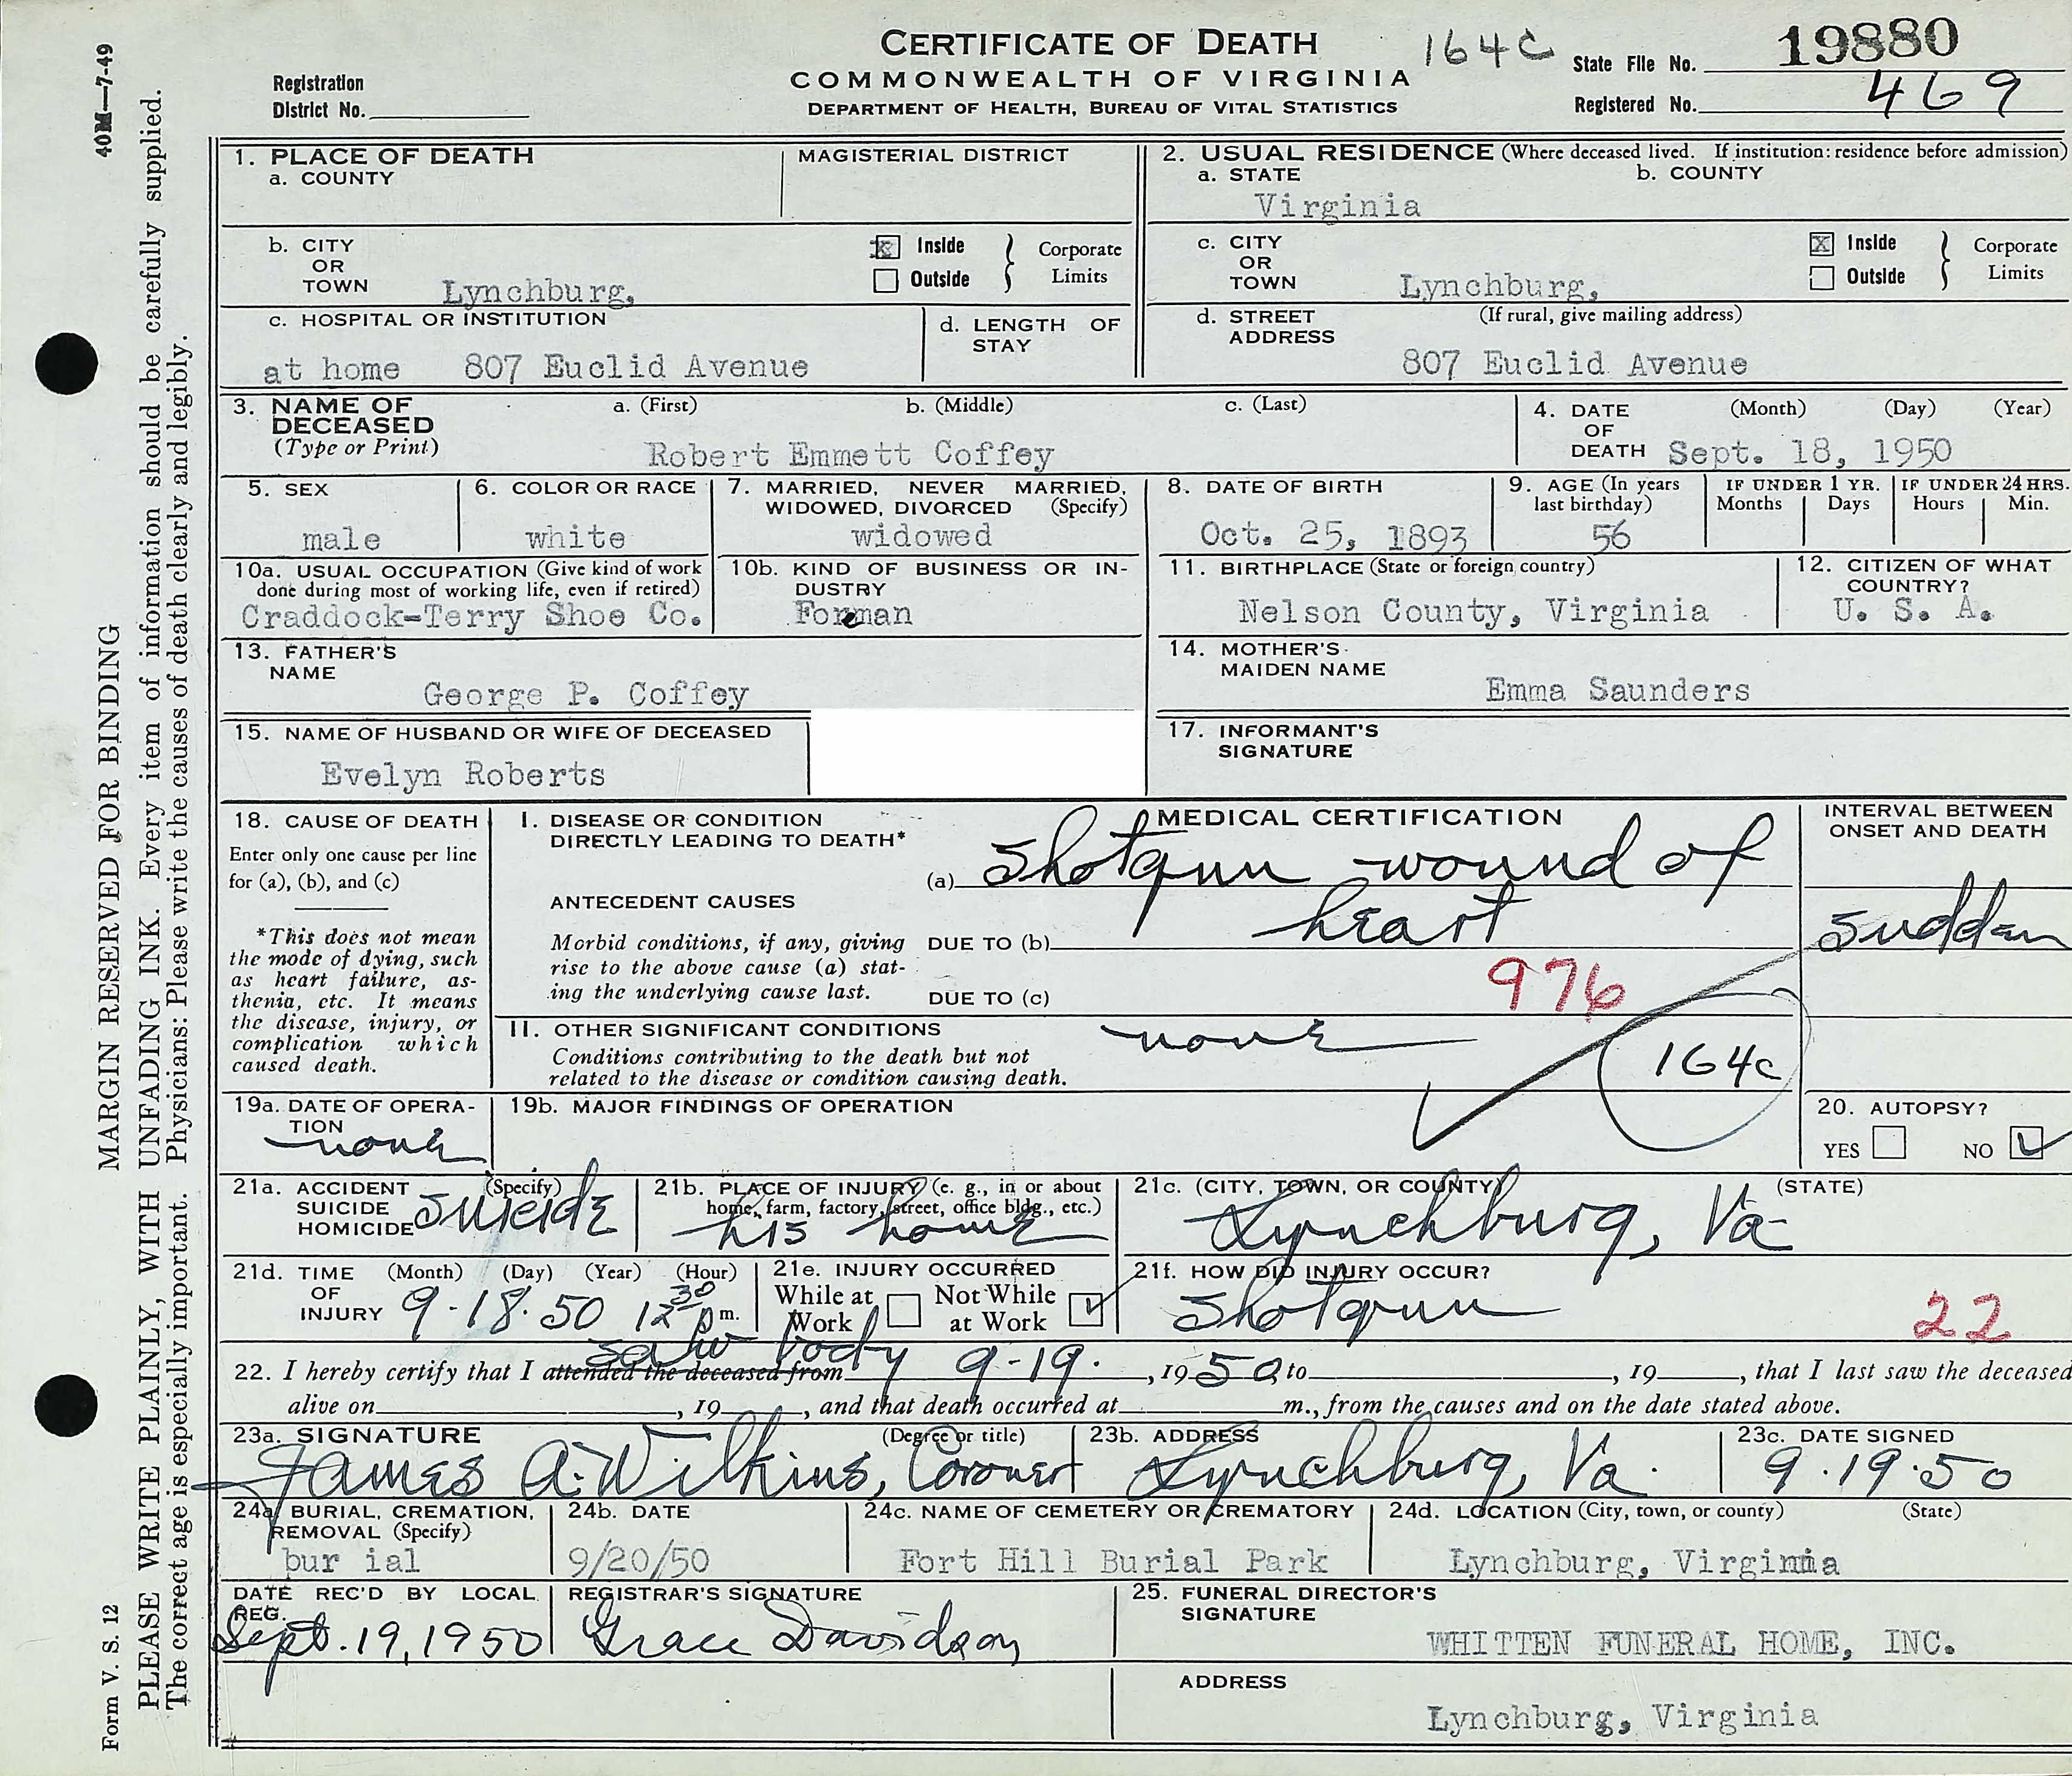 40M—7-49
CERTIFICATE OF DEATH
COMMONWEALTH OF VIRGINIA
DEPARTMENT OF HEALTH, BUREAU OF VITAL STATISTICS
164C
State File No. 19880
Registered No. 469
Registration
District No.
MARGIN RESERVED FOR BINDING
PLEASE WRITE PLAINLY, WITH UNFADING INK. Every item of information should be carefully supplied.
The correct age is especially important. Physicians: Please write the causes of death clearly and legibly.
Form V. S. 12
1. PLACE OF DEATH
a. COUNTY
MAGISTERIAL DISTRICT
2. USUAL RESIDENCE (Where deceased lived. If institution: residence before admission)
a. STATE
b. COUNTY
Virginia
b. CITY
OR
TOWN
Lynchburg,
x Inside
Outside
Corporate
Limits
c. CITY
OR
TOWN
Lynchburg,
x Inside
Outside
Corporate
Limits
c. HOSPITAL OR INSTITUTION
at home 807 Euclid Avenue
d. LENGTH OF
STAY
d. STREET
ADDRESS
(If rural, give mailing address)
807 Euclid Avenue
3. NAME OF
DECEASED
(Type or Print)
a. (First) b. (Middle) c. (Last)
Robert Emmett Coffey
4. DATE
OF
DEATH
(Month) (Day) (Year)
Sept. 18, 1950
5. SEX
male
6. COLOR OR RACE
white
7. MARRIED, NEVER MARRIED,
WIDOWED, DIVORCED (Specify)
widowed
8. DATE OF BIRTH
Oct. 25, 1893
9. AGE (In years
last birthday)
56
IF UNDER 1 YR.
Months Days
IF UNDER 24 HRS.
Hours Min.
10a. USUAL OCCUPATION (Give kind of work
done during most of working life, even if retired)
Craddock-Terry Shoe Co.
10b. KIND OF BUSINESS OR IN-
DUSTRY
Forman
11. BIRTHPLACE (State or foreign country)
Nelson County, Virginia
12. CITIZEN OF WHAT
COUNTRY?
U. S. A.
13. FATHER'S
NAME
George P. Coffey
14. MOTHER'S
MAIDEN NAME
Emma Saunders
15. NAME OF HUSBAND OR WIFE OF DECEASED
Evelyn Roberts
17. INFORMANT'S
SIGNATURE
18. CAUSE OF DEATH
Enter only one cause per line
for (a), (b), and (c)
*This does not mean
the mode of dying, such
as heart failure, as-
thenia, etc. It means
the disease, injury, or
complication which
caused death.
MEDICAL CERTIFICATION
I. DISEASE OR CONDITION
DIRECTLY LEADING TO DEATH*
(a) Shotgun wound of
heart
ANTECEDENT CAUSES
Morbid conditions, if any, giving
rise to the above cause (a) stat-
ing the underlying cause last.
DUE TO (b)
DUE TO (c)
976
INTERVAL BETWEEN
ONSET AND DEATH
Sudden
II. OTHER SIGNIFICANT CONDITIONS
Conditions contributing to the death but not
related to the disease or condition causing death.
none
164c
19a. DATE OF OPERA-
TION
none
19b. MAJOR FINDINGS OF OPERATION
20. AUTOPSY?
YES NO ✓
21a. ACCIDENT
SUICIDE
HOMICIDE
(Specify)
Suicide
21b. PLACE OF INJURY (e. g., in or about
home, farm, factory, street, office bldg., etc.)
his home
21c. (CITY, TOWN, OR COUNTY) (STATE)
Lynchburg, Va-
21d. TIME
OF
INJURY
(Month) (Day) (Year) (Hour)
9-18-50 12 30 p m.
21e. INJURY OCCURRED
While at
Work
Not While
at Work ✓
21f. HOW DID INJURY OCCUR?
Shotgun
22
saw body 9-19.
22. I hereby certify that I attended the deceased from , 1950 to , 19 , that I last saw the deceased
alive on , 19 , and that death occurred at m., from the causes and on the date stated above.
23a. SIGNATURE (Degree or title)
James A. Wilkins, Coroner
23b. ADDRESS
Lynchburg, Va.
23c. DATE SIGNED
9.19.50
24a. BURIAL, CREMATION,
REMOVAL (Specify)
bur ial
24b. DATE
9/20/50
24c. NAME OF CEMETERY OR CREMATORY
Fort Hill Burial Park
24d. LOCATION (City, town, or county) (State)
Lynchburg, Virginia
DATE REC'D BY LOCAL
REG.
Sept. 19, 1950
REGISTRAR'S SIGNATURE
Grace Davidson
25. FUNERAL DIRECTOR'S
SIGNATURE
WHITTEN FUNERAL HOME, INC.
ADDRESS
Lynchburg, Virginia